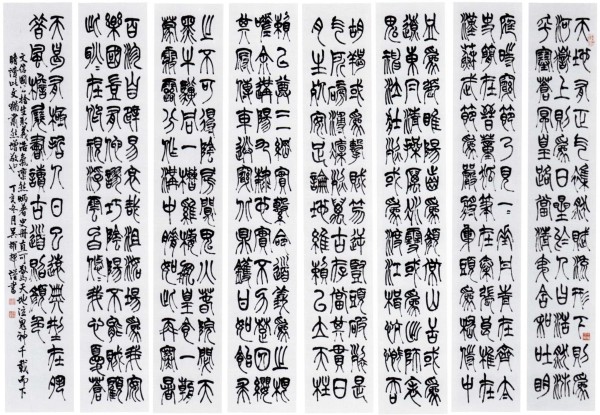 天地有正氣雜然賦流形下則為
河嶽上則為日星於人曰浩然沛
乎塞蒼冥皇路當清夷含和吐明
庭時窮節乃見一一垂丹青在齊太
史簡在晉董狐筆在秦張良椎在
漢蘇武節為嚴將軍頭為嵇侍中
血為張睢陽齒為顏常山舌或為
遼東帽清操厲冰雪或為出師表
鬼神泣壯烈或為渡江楫慷慨吞
胡羯或為擊賊笏逆豎頭破裂是
氣所磅礴凜烈萬古存當其貫日
月生死安足論地維賴以立天柱
賴以尊三綱實繫命道義為之根
嗟余遘陽九隸也實不力楚囚纓
其冠傳車送窮北鼎鑊甘如飴求
之不可得陰房闃鬼火春院閟天
黑牛驥同一皂雞棲鳳凰食一朝
蒙霧露分作溝中瘠如此再寒暑
百沴自辟易哀哉沮洳場為我安
樂國豈有他繆巧陰陽不能賊顧
此耿耿在仰視浮雲白悠悠我心憂蒼
天曷有極哲人日已遠典型在夙
昔風簷展書讀古道照顏色
文信國義浩氣凜然炳著史冊真可驚天地泣鬼神千載而下
時誦以文猶肅然增敬也丁亥冬月吳書